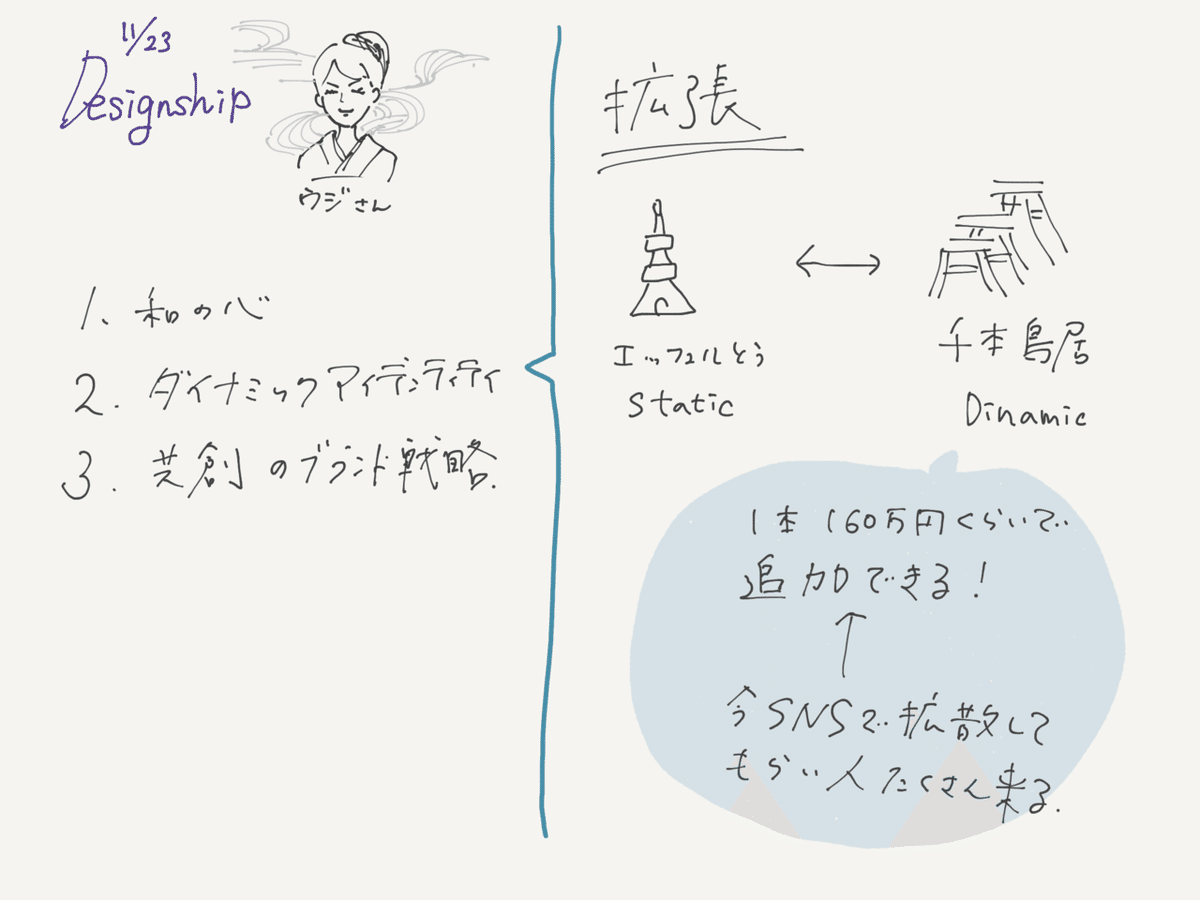 11/23
Designship
ウジさん
1. 和の心
2. ダイナミックアイデンティティ
3. 共創のブランド戦略.
拡張
エッフェルとう
Static
千本鳥居
Dinamic
1本160万円くらいで
追加できる！
今SNSで拡散して
もらい人たくさん来る.